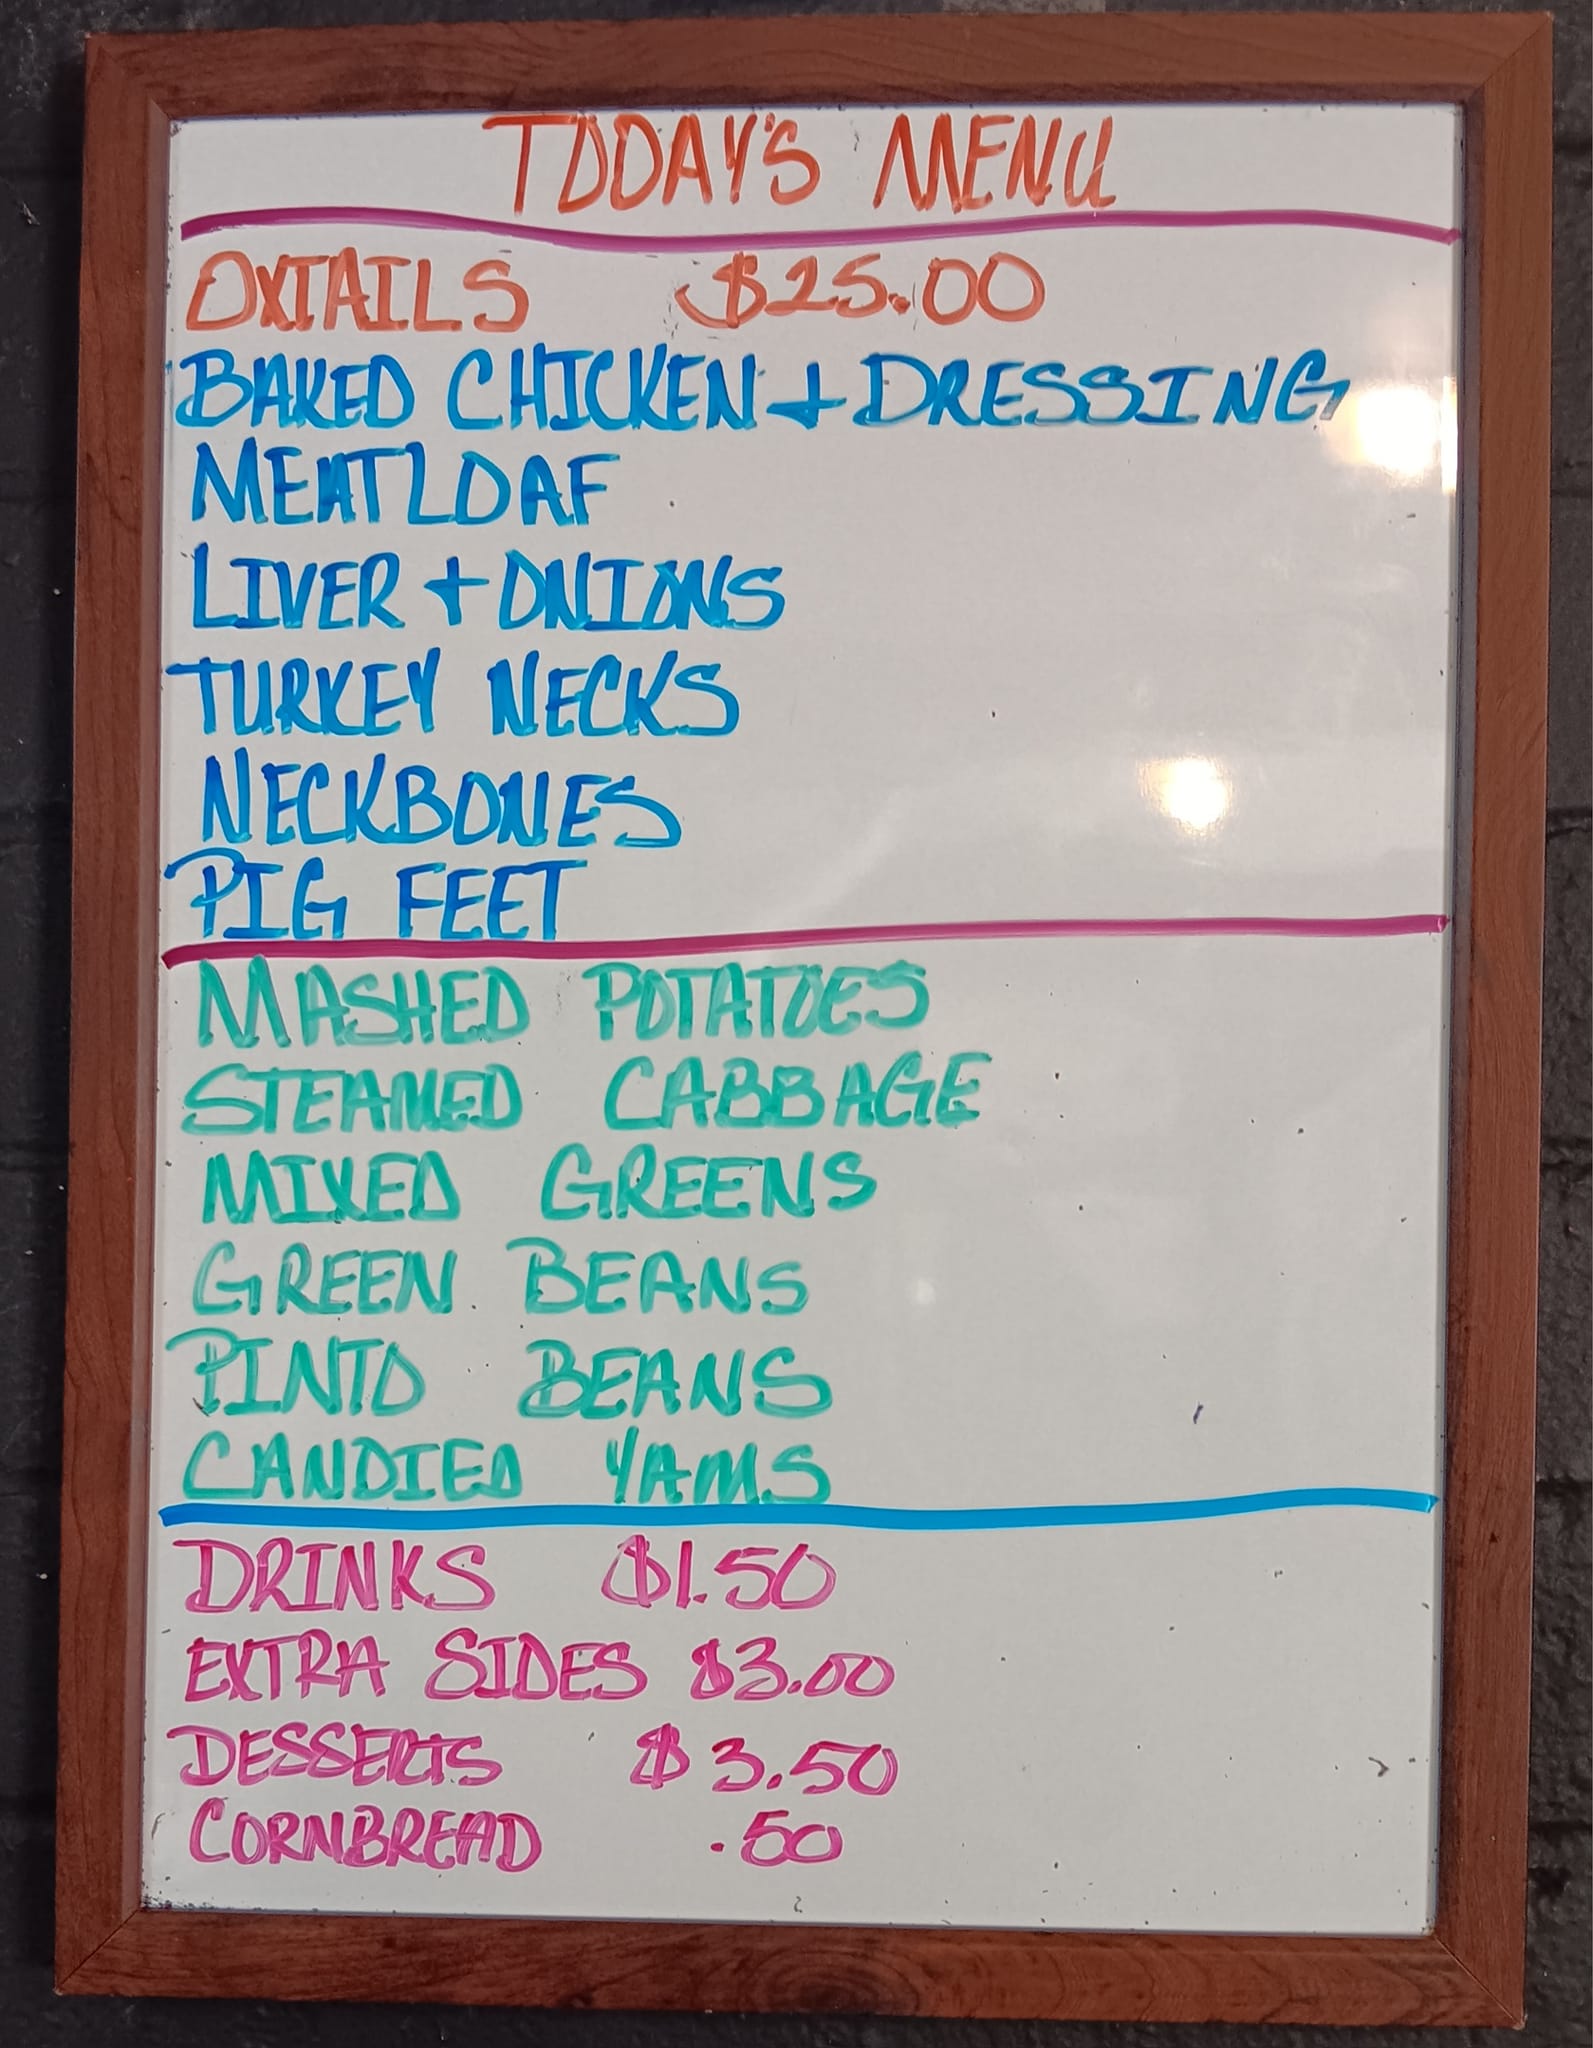 TODAY'S MENU
OXTAILS $25.00
BAKED CHICKEN + DRESSING
MEATLOAF
LIVER + ONIONS
TURKEY NECKS
NECKBONES
PIG FEET
MASHED POTATOES
STEAMED CABBAGE
MIXED GREENS
GREEN BEANS
PINTO BEANS
CANDIED YAMS
DRINKS $1.50
EXTRA SIDES $3.00
DESSERTS $3.50
CORNBREAD .50